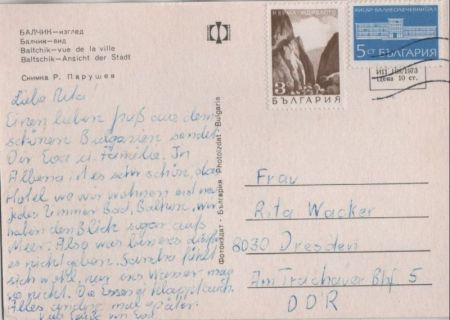 БАЛЧИК—изглед
Балчик—вид
Baltchik—vue de la ville
Baltschik—Ansicht der Stadt
Снимка Р. Парушев
Liebe Rita!
Einen lieben Gruß aus dem
schönen Bulgarien sendet
Dir Eva u. Familie. In
Albena ist es sehr schön, das
Hotel wo wir wohnen hat
jedes Zimmer Bad, Balkon, wir
haben den Blick sogar aufs
Meer. Also was besseres
es nicht geben. Sandra fühlt
sich wohl, nur ins Wasser mag
sie nicht. Die Essen klappt auch.
Alles andere mal später.
Фотоиздат - България - Photoizdat - Bulgarie
3
БЪЛГАРИЯ
5 СТ. БЪЛГАРИЯ
ИП 1973
Цена 10 ст.
Frau
Rita Wacker
8030 Dresden
Am Trachauer Bhf 5
DDR